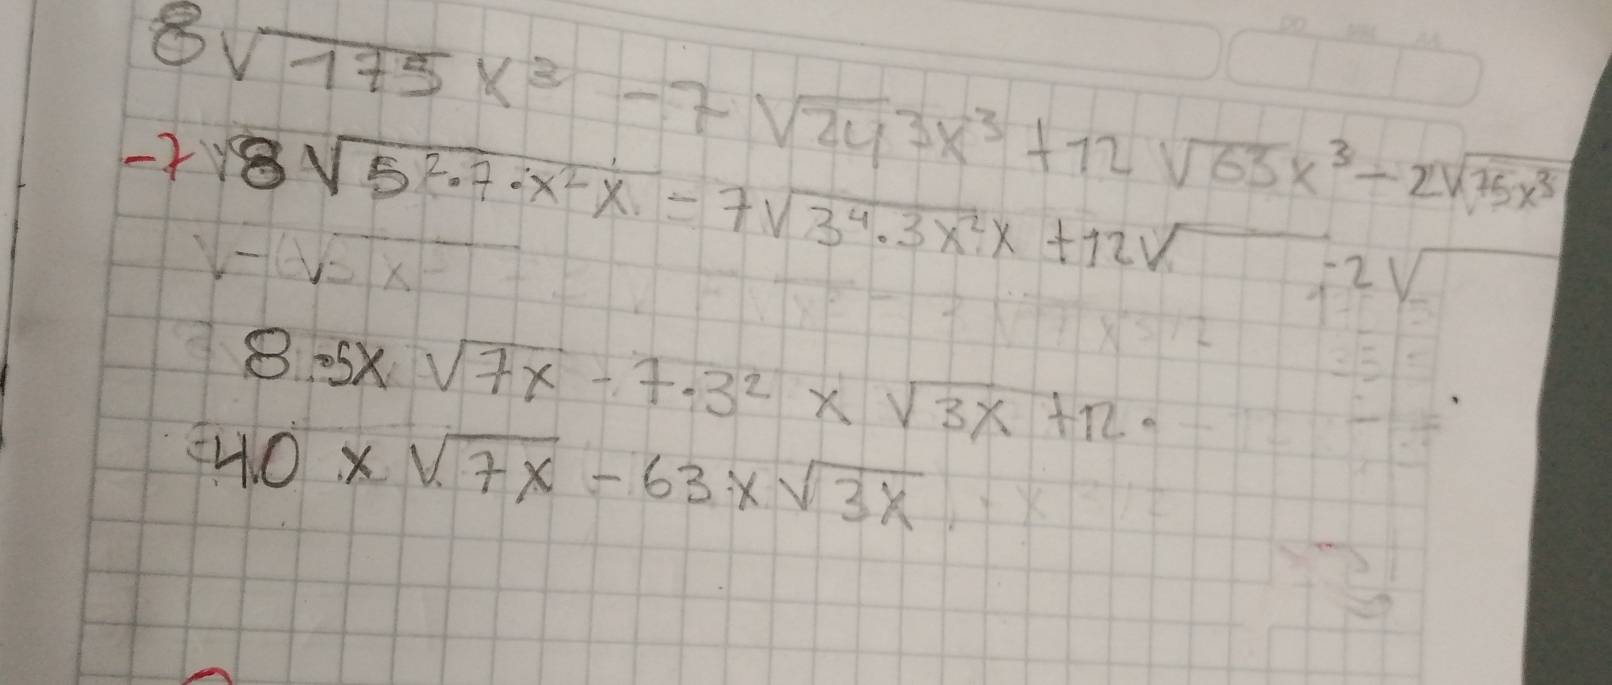 8√175 x³ - 7 √243x³ + 12 √63x³ - 2√75x³
-7 √8√5²·7·x²x = 7√3⁴·3x²x + 12√ - 2√
8·5x √7x - 7·3² x √3x + 12·
40 x √7x - 63x√3x